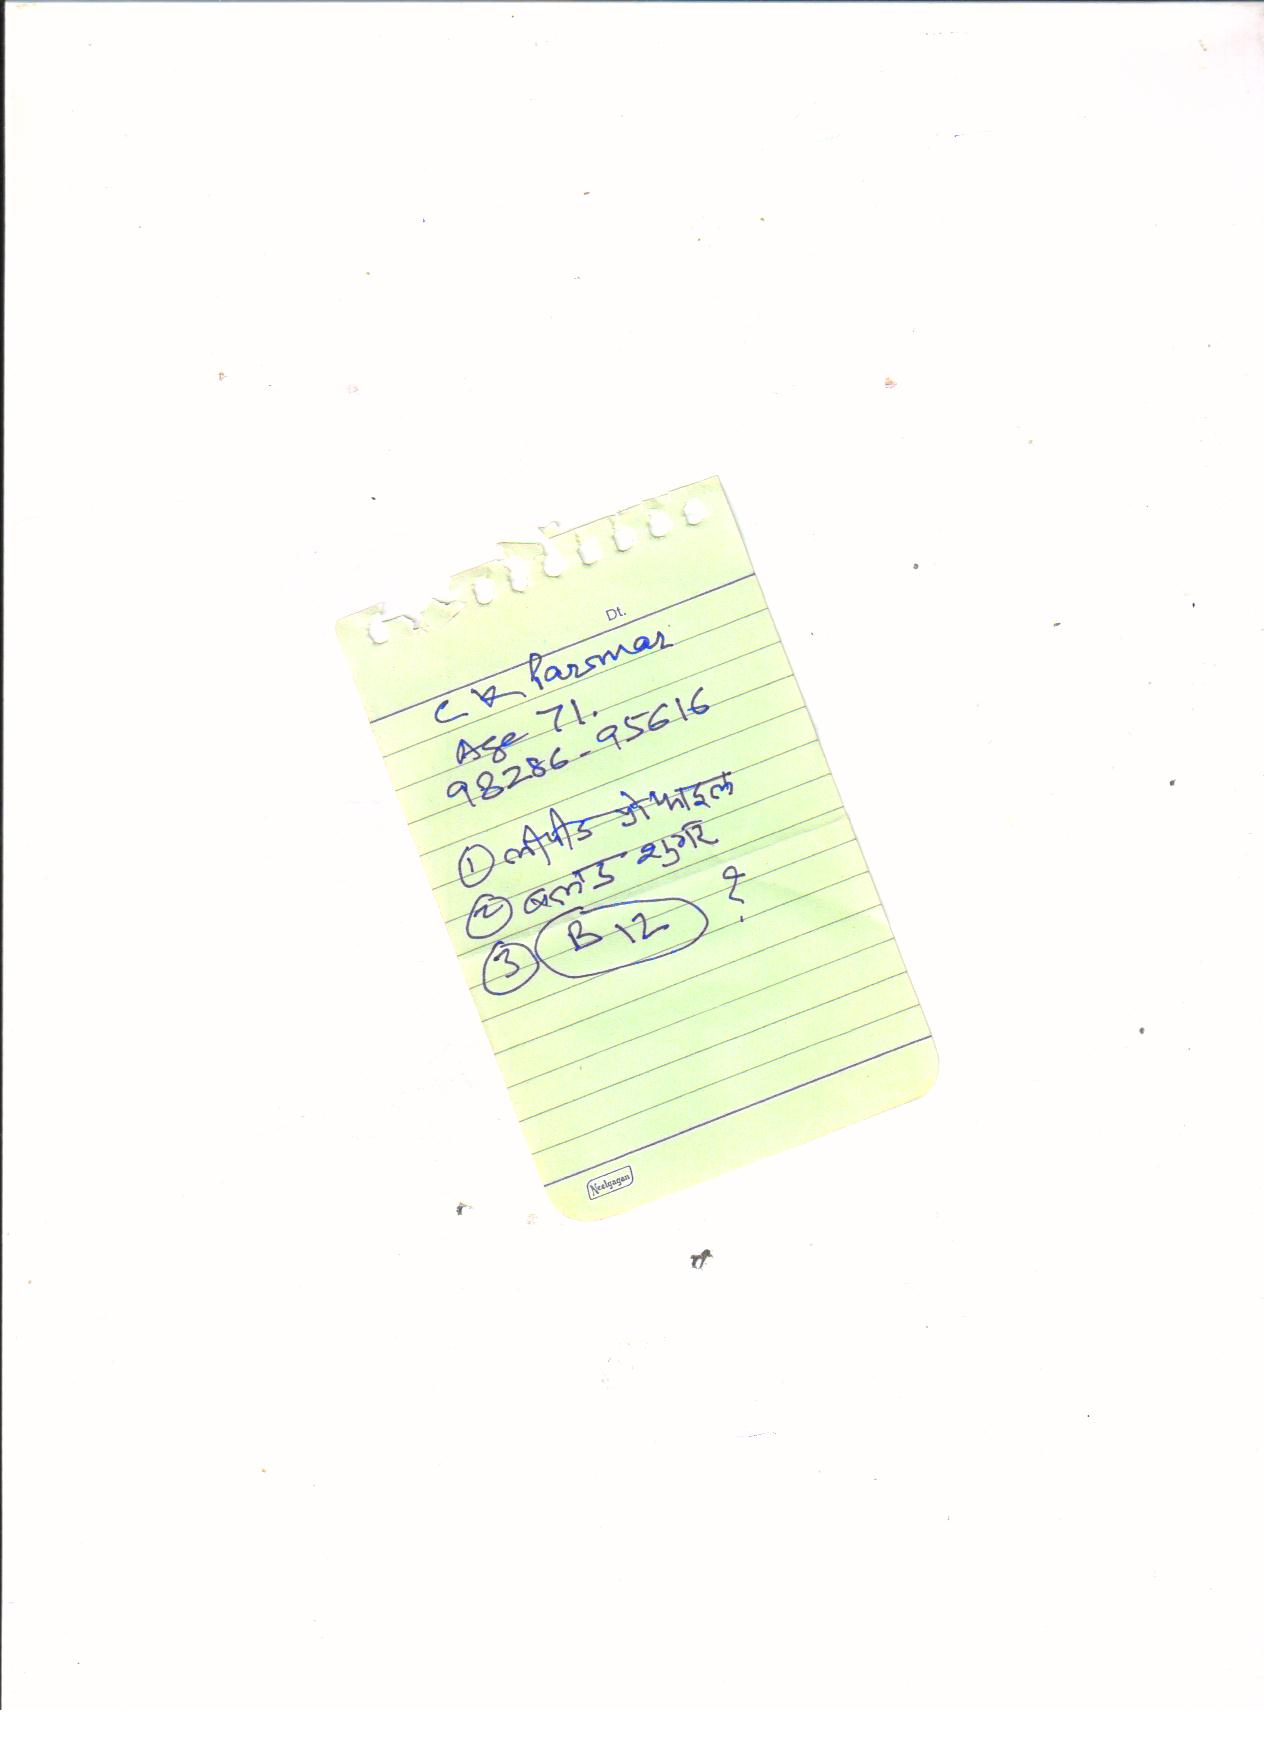 Dt.
C K Parsmar
Age 71.
98286-95616
① लीपीड प्रोफाइल
② ब्लड शुगर
③ B12 ?
Neelgagan